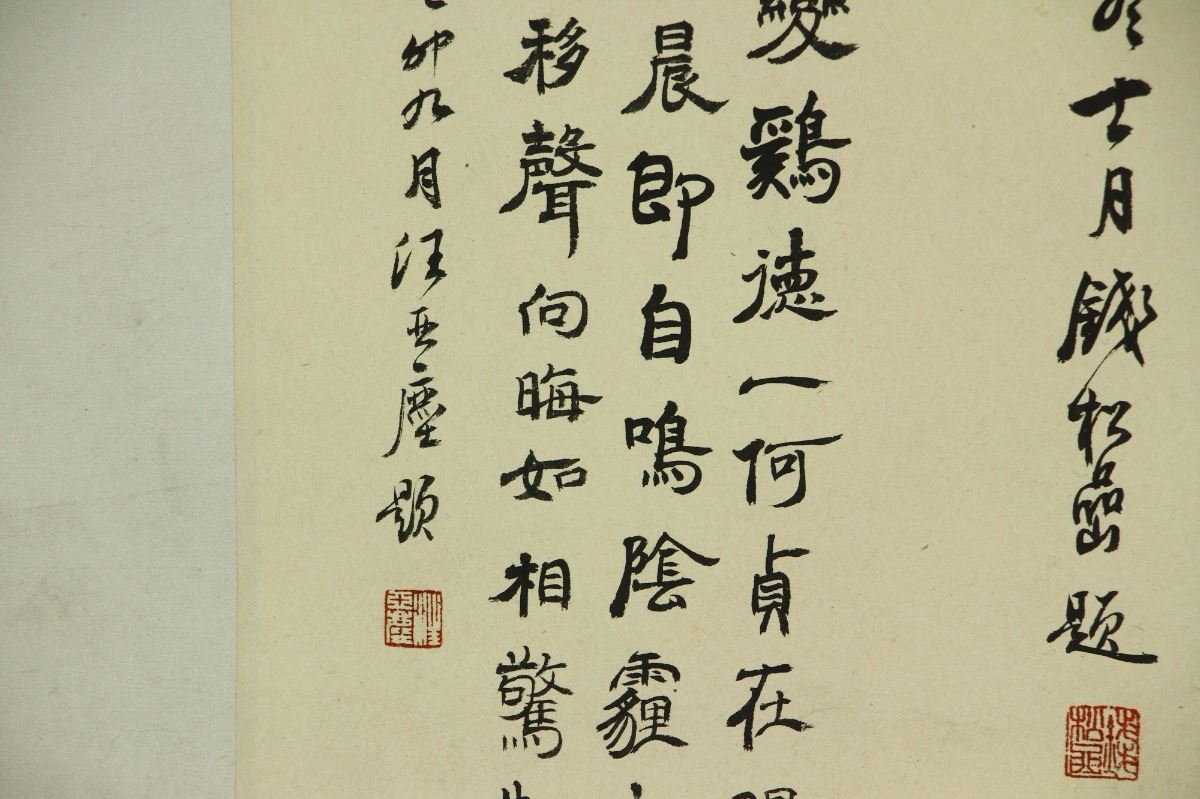 冬十月錢松嵒題
變鷄德一何貞在
晨即自鳴陰霾
移聲向晦如相驚
卯九月汪亞塵題
汪亞塵